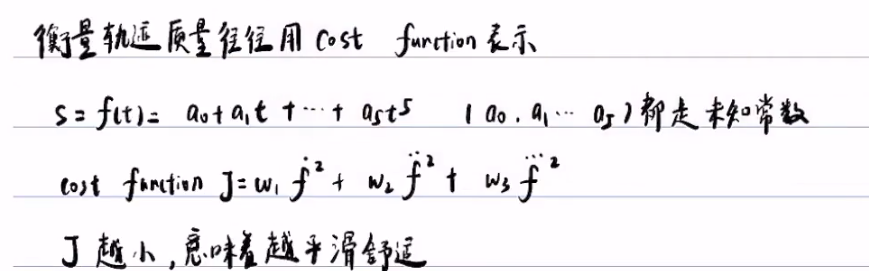 衡量轨迹质量往往用 cost function 表示
s = f(t) = a₀ + a₁t + ⋯ + a₅t⁵ (a₀, a₁ ⋯ a₅) 都是未知常数
cost function J = w₁ ḟ² + w₂ f̈² + w₃ f⃛²
J 越小,意味着越平滑舒适